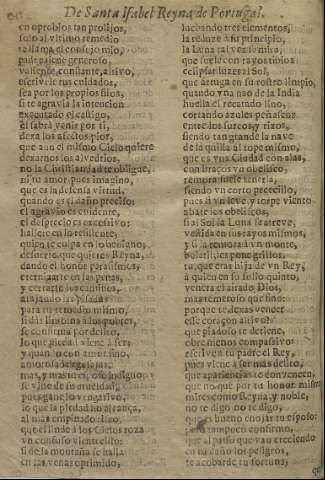 De Santa Isabel Reyna de Portugal.
en oprobios tan prolijos,
solo al vltimo remedio
te llama el consejo mio,
padre tiene generoso,
valiente, constante, altivo,
escrivele tus cuidados,
sea por los propios filos,
si te agravia la intencion
executado el castigo,
el sabrà venir por ti,
dexa los afectos pios,
que aun el mismo Cielo quiere
dexarnos los alvedrios,
no la Christiandad te obligue,
ni tu amor, pues imagino,
que es la defensa virtud,
quando es el daño preciso:
el agravio es evidente,
el desprecio es excessivo:
hallete en lo
quien te culpa en lo
que quieres Reyna,
dando el honor parasismos,
enternecerte en las penas,
y cerrarte los caminos,
atajando las pisadas
para tu remedio mismo,
si das
se confirma por delito,
lo que piedad viene à ser;
y quando con amor fino,
amorosa
mas, y mas tu esposo indigno;
se viene de su crueldad,
pues gane lo vengativo,
lo que la piedad no alcança,
al mas empinado risco,
que essento à los Cielos roza
vn confuso vientecillo:
si de la montaña se halla
en las venas oprimido,
luchando tres elementos,
la reduce à su principio,
la Luna tal vez
que suele con rayos tibios
eclipsar luzes al Sol,
que arruga en su rostro limpio,
quando vna nao de la India
huella el recatado lino,
cortando azules peñascos
entre los surcos, y rizos,
siendo tan grande la nave
de la quilla al tope mismo,
que es vna Ciudad con alas,
con braços vn obelisco,
remora suele tenerla,
siendo vn corto pececillo,
pues à vn leve, y torpe viento
abate los obeliscos,
si al Sol la Luna se atreve,
venida en sus rayos mismos,
y si la remora à vn monte,
bolatil, les pone grillos,
tu, que eres hija de vn Rey,
à quien en su solio quinto,
venera el airado Dios,
mas temeroso que fino:
porque te dexas vencer
esse coraçon altivo?
que piadoso te detiene,
obre menos compassivo:
escrive à tu padre el Rey,
pues viene à ser mas delito,
que apariencias te convencen,
que no que por tu honor mismo
mires como Reyna, y noble,
no te digo no te digo,
que es bueno enojar tu esposo:
tampoco confirmo,
que al passo que van creciendo
en tu daño los peligros,
te acobarde tu fortuna;